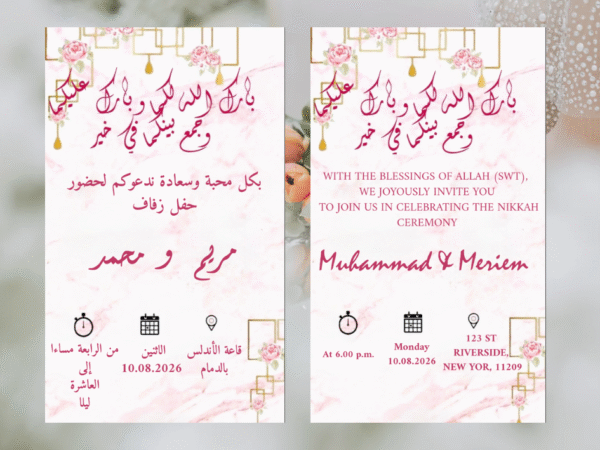 بارك الله لكما وبارك عليكما
وجمع بينكما في خير
بكل محبة وسعادة ندعوكم لحضور
حفل زفاف
مريم و محمد
من الرابعة مساءا
إلى
العاشرة
ليلا
الاثنين
10.08.2026
قاعة الأندلس
بالدمام
بارك الله لكما وبارك عليكما
وجمع بينكما في خير
WITH THE BLESSINGS OF ALLAH (SWT),
WE JOYOUSLY INVITE YOU
TO JOIN US IN CELEBRATING THE NIKKAH
CEREMONY
Muhammad & Meriem
At 6.00 p.m.
Monday
10.08.2026
123 ST
RIVERSIDE,
NEW YOR, 11209